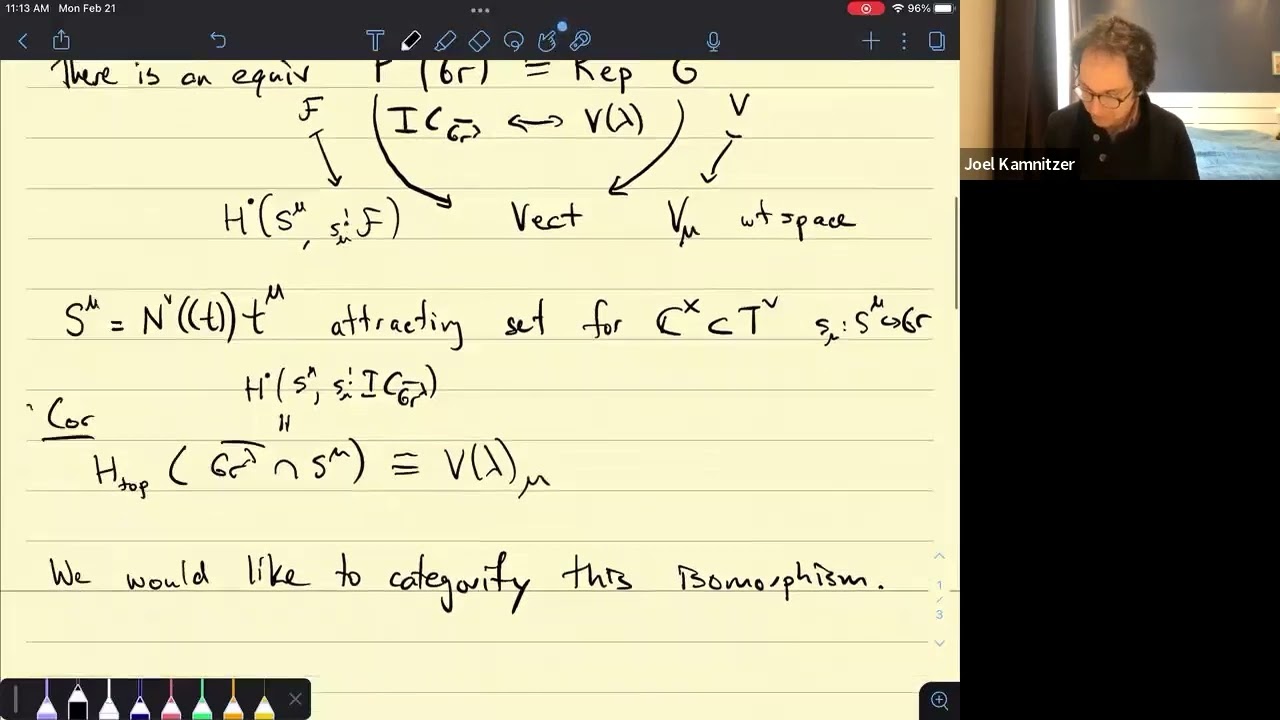 11:13 AM Mon Feb 21
96%
There is an equiv P (Gr) ≅ Rep G
F IC_{\overline{Gr^λ}} ↔ V(λ) V
H^•(S^μ, s_μ^! F) Vect V_μ wt space
S^μ = N^∨((t)) t^μ attracting set for C^× ⊂ T^∨ s_μ : S^μ ↪ Gr
H^•(S^μ, s_μ^! IC_{\overline{Gr^λ}})
Cor
H_top ( \overline{Gr^λ} ∩ S^μ ) ≅ V(λ)_μ
We would like to categorify this isomorphism.
1
/
3
Joel Kamnitzer